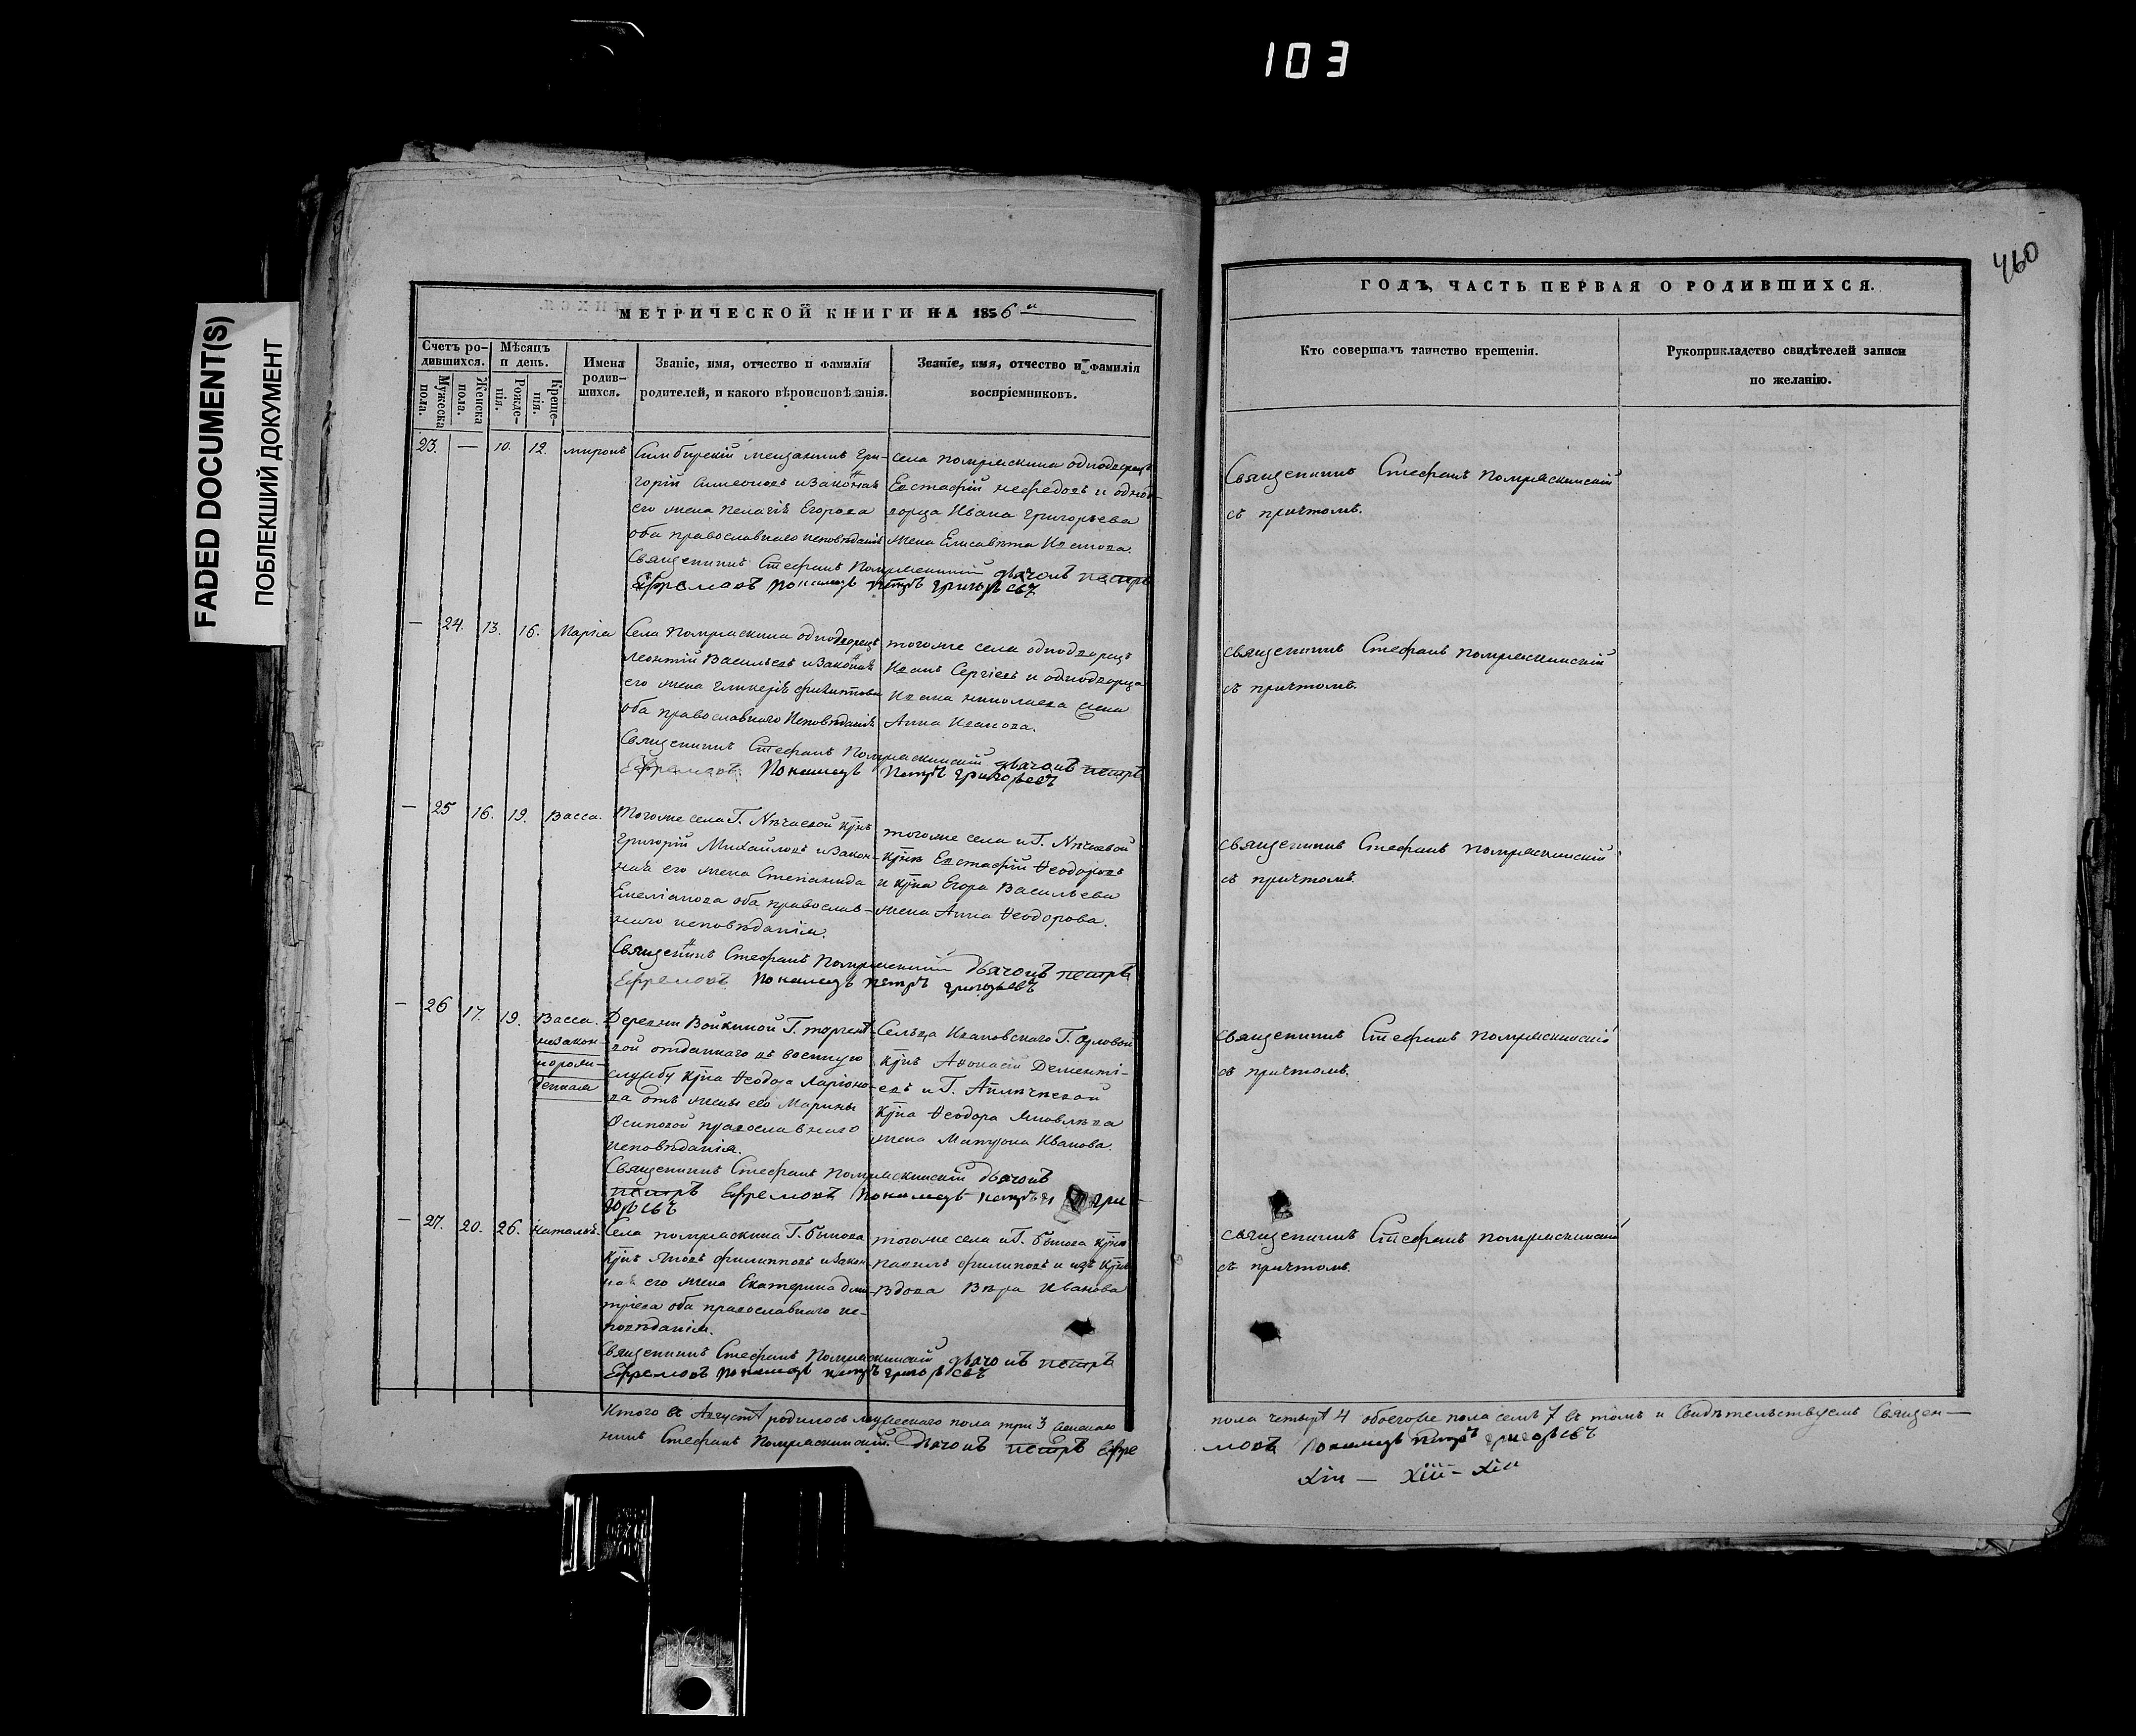 103
FADED DOCUMENT(S)
ПОБЛЕКШИЙ ДОКУМЕНТ
460
МЕТРИЧЕСКОЙ КНИГИ НА 1856
Счетъ ро-
дившихся.
Мужеска
пола.
Женска
пола.
Мѣсяцъ
и день.
Рожде-
нія.
Креще-
нія.
Имена
родив-
шихся.
Званіе, имя, отчество и фамилія
родителей, и какого вѣроисповѣданія.
Званіе, имя, отчество и фамилія
воспріемниковъ.
23. — 10. 12. Миронъ
Симбирскій мещанинъ Гри-
горій Симеоновъ и законная
его жена Пелагія Егорова
оба православнаго исповѣданія
села Помряскина однодворецъ
Евстафій Нефедовъ и однод-
ворца Ивана Григорьева
жена Елисавета Иванова.
Священникъ Стефанъ Помряскинскій дьячокъ Петръ
Ефремовъ пономарь Петръ Григорьевъ
— 24. 13. 16. Марія
Села Помряскина однодворецъ
Леонтій Васильевъ и законная
его жена Гликерія Филиппова
оба православнаго исповѣданія
тогоже села однодворецъ
Иванъ Сергіевъ и однодворца
Ивана Николаева жена
Анна Иванова.
Священникъ Стефанъ Помряскинскій дьячокъ Петръ
Ефремовъ Пономарь Петръ Григорьевъ
— 25 16. 19. Васса.
Тогоже села Г. Нѣчаевой крнъ
Григорій Михайловъ и закон-
ная его жена Степанида
Емеліанова оба православ-
наго исповѣданія.
тогоже села и Г. Нѣчаевой
крнъ Евстафій Ѳеодоровъ
и крна Егора Васильева
жена Анна Ѳеодорова.
Священникъ Стефанъ Помряскинскій дьячокъ Петръ
Ефремовъ Пономарь Петръ Григорьевъ
— 26 17. 19. Васса.
незакон-
норож-
денная
Деревни Войкиной Г.
отданнаго въ военную
службу крна Ѳеодора Ларіоно-
ва отъ жены его Марины
Осиповой православнаго
исповѣданія.
Сельца Ивановскаго Г. Орловой
крнъ Аѳонасій Дементі-
евъ и Г.
крна Ѳеодора Яковлева
жена Матрона Иванова.
Священникъ Стефанъ Помряскинскій дьячокъ
Петръ Ефремовъ Пономарь Петръ Гри-
горьевъ
— 27. 20. 26. Наталья.
Села Помряскина Г. Бычкова
крнъ Яковъ Филипповъ и закон-
ная его жена Екатерина Дми-
тріева оба православнаго ис-
повѣданія.
тогоже села и Г. Бычкова крнъ
Павелъ Филиповъ и изъ крнъ
вдова Вѣра Иванова
Священникъ Стефанъ Помряскинскій дьячокъ Петръ
Ефремовъ пономарь Петръ Григорьевъ
Итого въ Августѣ родилось мужескаго пола три 3 женскаго
никъ Стефанъ Помряскинскій. Дьячокъ Петръ Ефре
ГОДЪ, ЧАСТЬ ПЕРВАЯ О РОДИВШИХСЯ.
Кто совершалъ таинство крещенія.
Рукоприкладство свидѣтелей записи
по желанію.
Священникъ Стефанъ Помряскинскій
съ причтомъ.
Священникъ Стефанъ Помряскинскій
съ причтомъ.
Священникъ Стефанъ Помряскинскій
съ причтомъ.
Священникъ Стефанъ Помряскинскій
съ причтомъ.
Священникъ Стефанъ Помряскинскій
съ причтомъ.
пола четыре 4 обоегоже пола семь 7 въ томъ и Свидѣтельствуемъ Священ-
мовъ Пономарь Петръ Григорьевъ